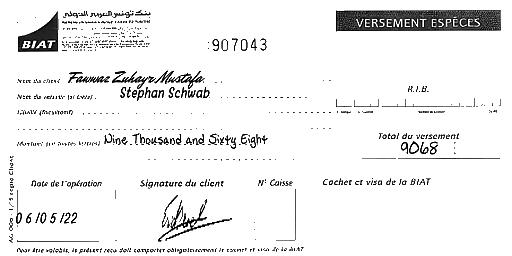 بنك تونس العربي الدولي
BIAT
907043
VERSEMENT ESPÈCES
Nom du client Fawwaz Zuhayr Mustafa
Nom du verseur (si tiers) Stephan Schwab
R.I.B.
Libellé (facultatif)
Montant (en toutes lettres) Nine Thousand and Sixty Eight
Total du versement
9068
Date de l'opération
Signature du client
N° Caisse
Cachet et visa de la BIAT
06/05/22
Pour être valable, le présent reçu doit comporter obligatoirement le cachet et visa de la BIAT